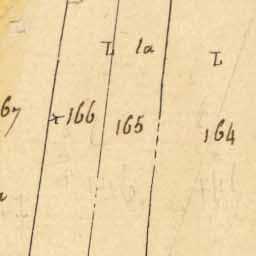 L la L
67 x166 165 164